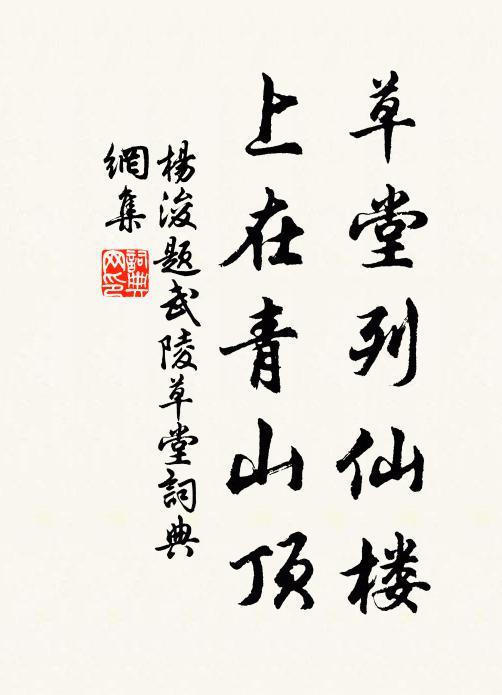 草堂列仙楼
上在青山顶
楊浚题武陵草堂詞典
網集
詞典网印